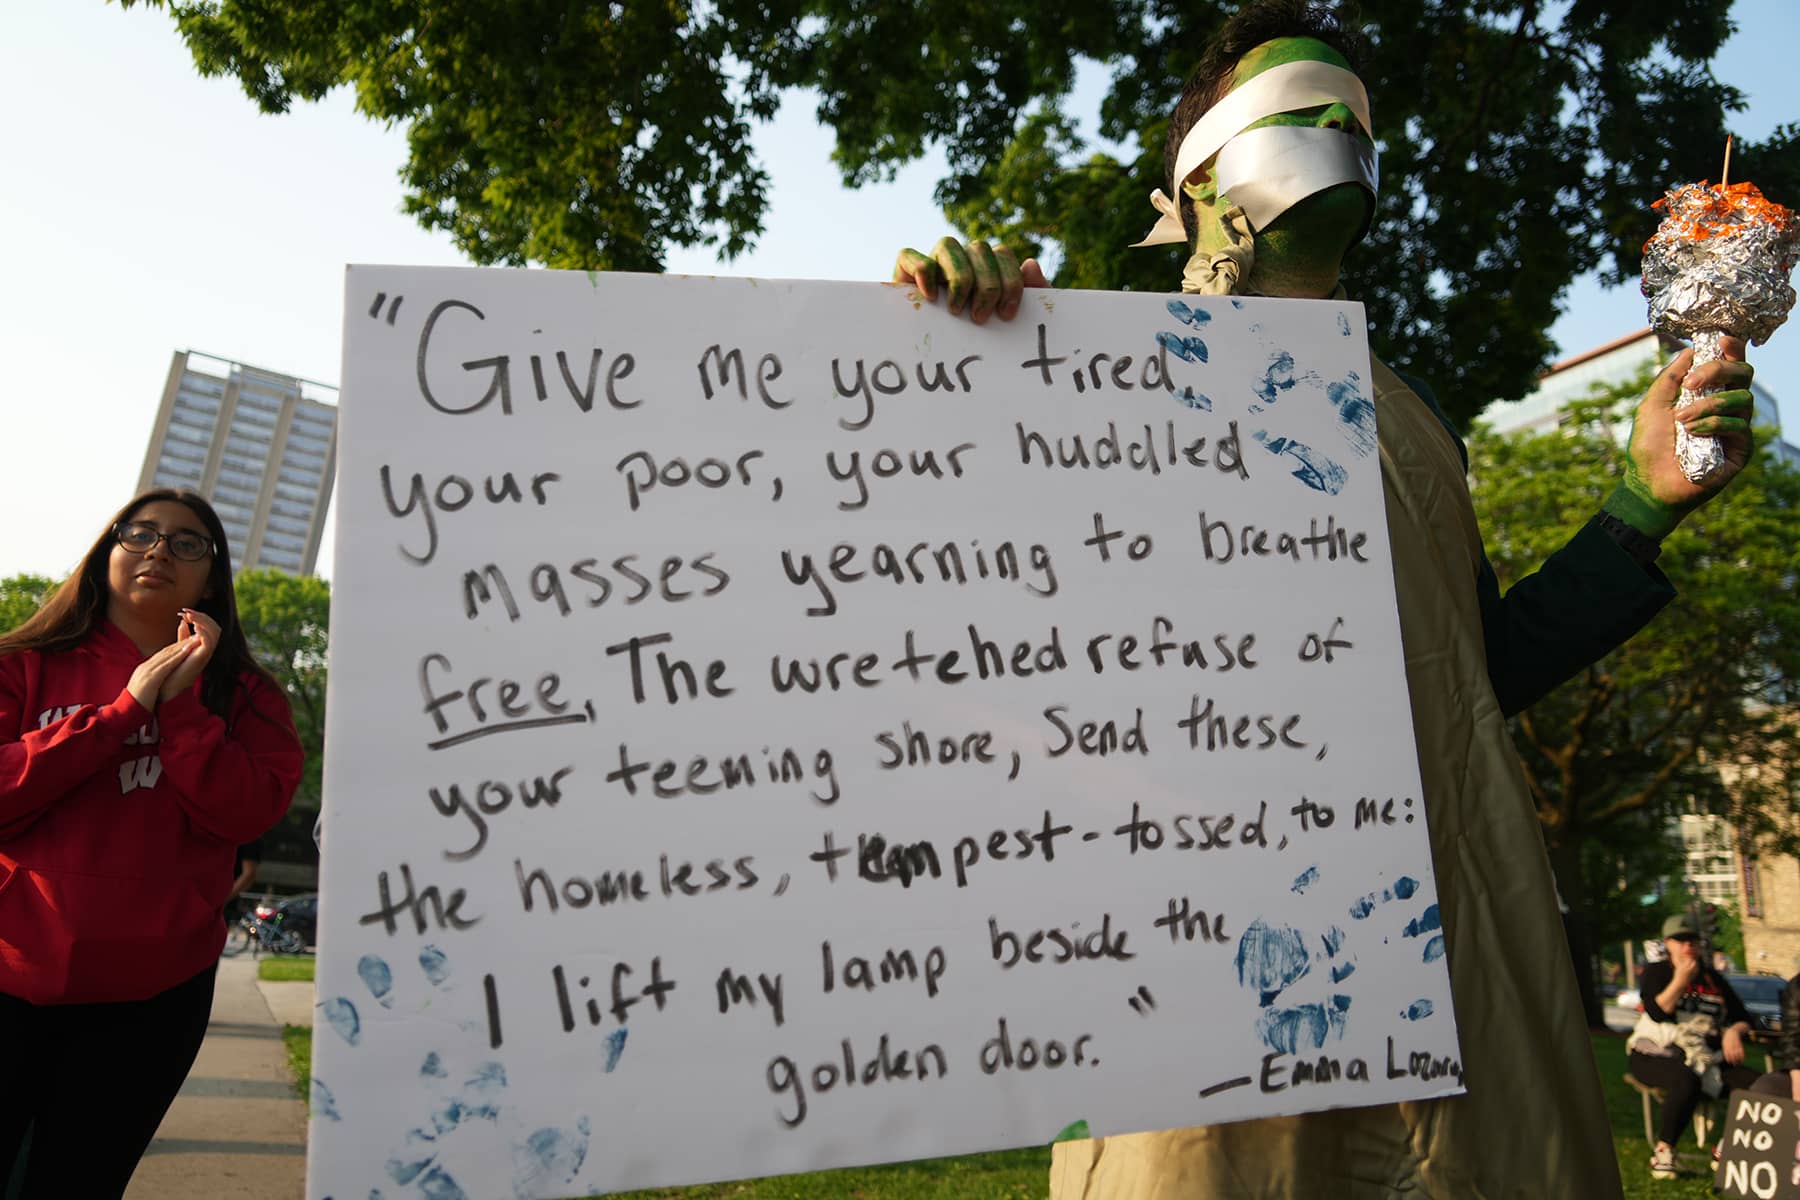 "Give me your tired,
your poor, your huddled
masses yearning to breathe
free, The wretched refuse of
your teeming shore, Send these,
the homeless, tempest-tossed, to me:
I lift my lamp beside the
golden door."
—Emma Lazarus
W
NO
NO
NO